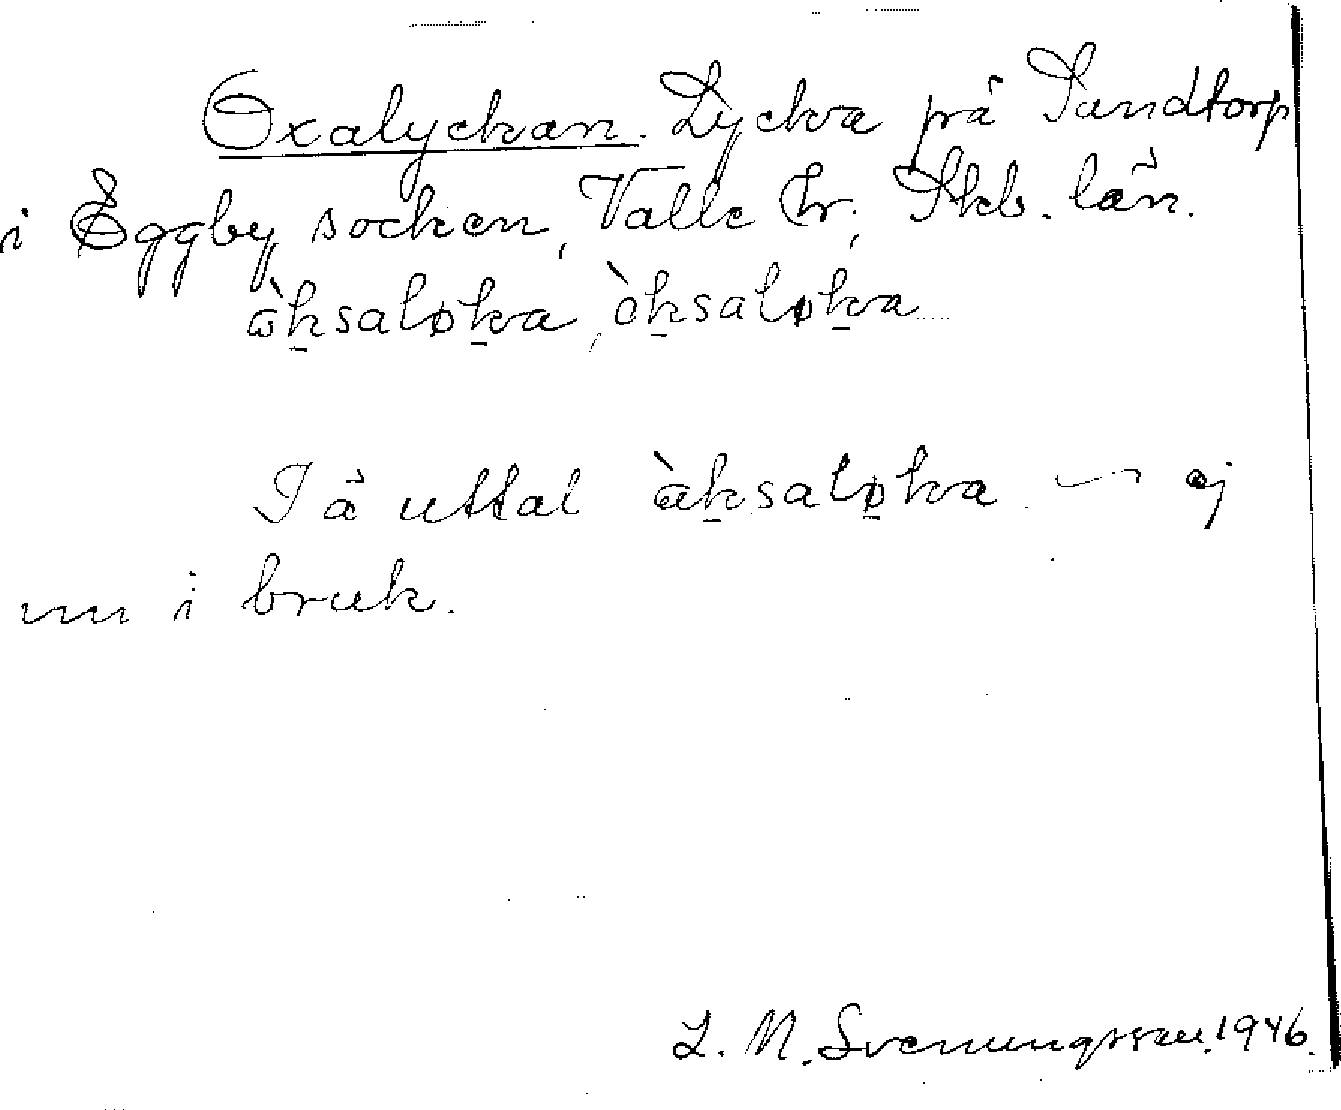 Oxalyckan. Lycka på Sandtorp
i Eggby socken, Valle hr, Skb. län.
ò̵ksaløka, òksaløka
I ä uttal òksaløka — ej
nu i bruk.
L. M. Svenungsson. 1946.